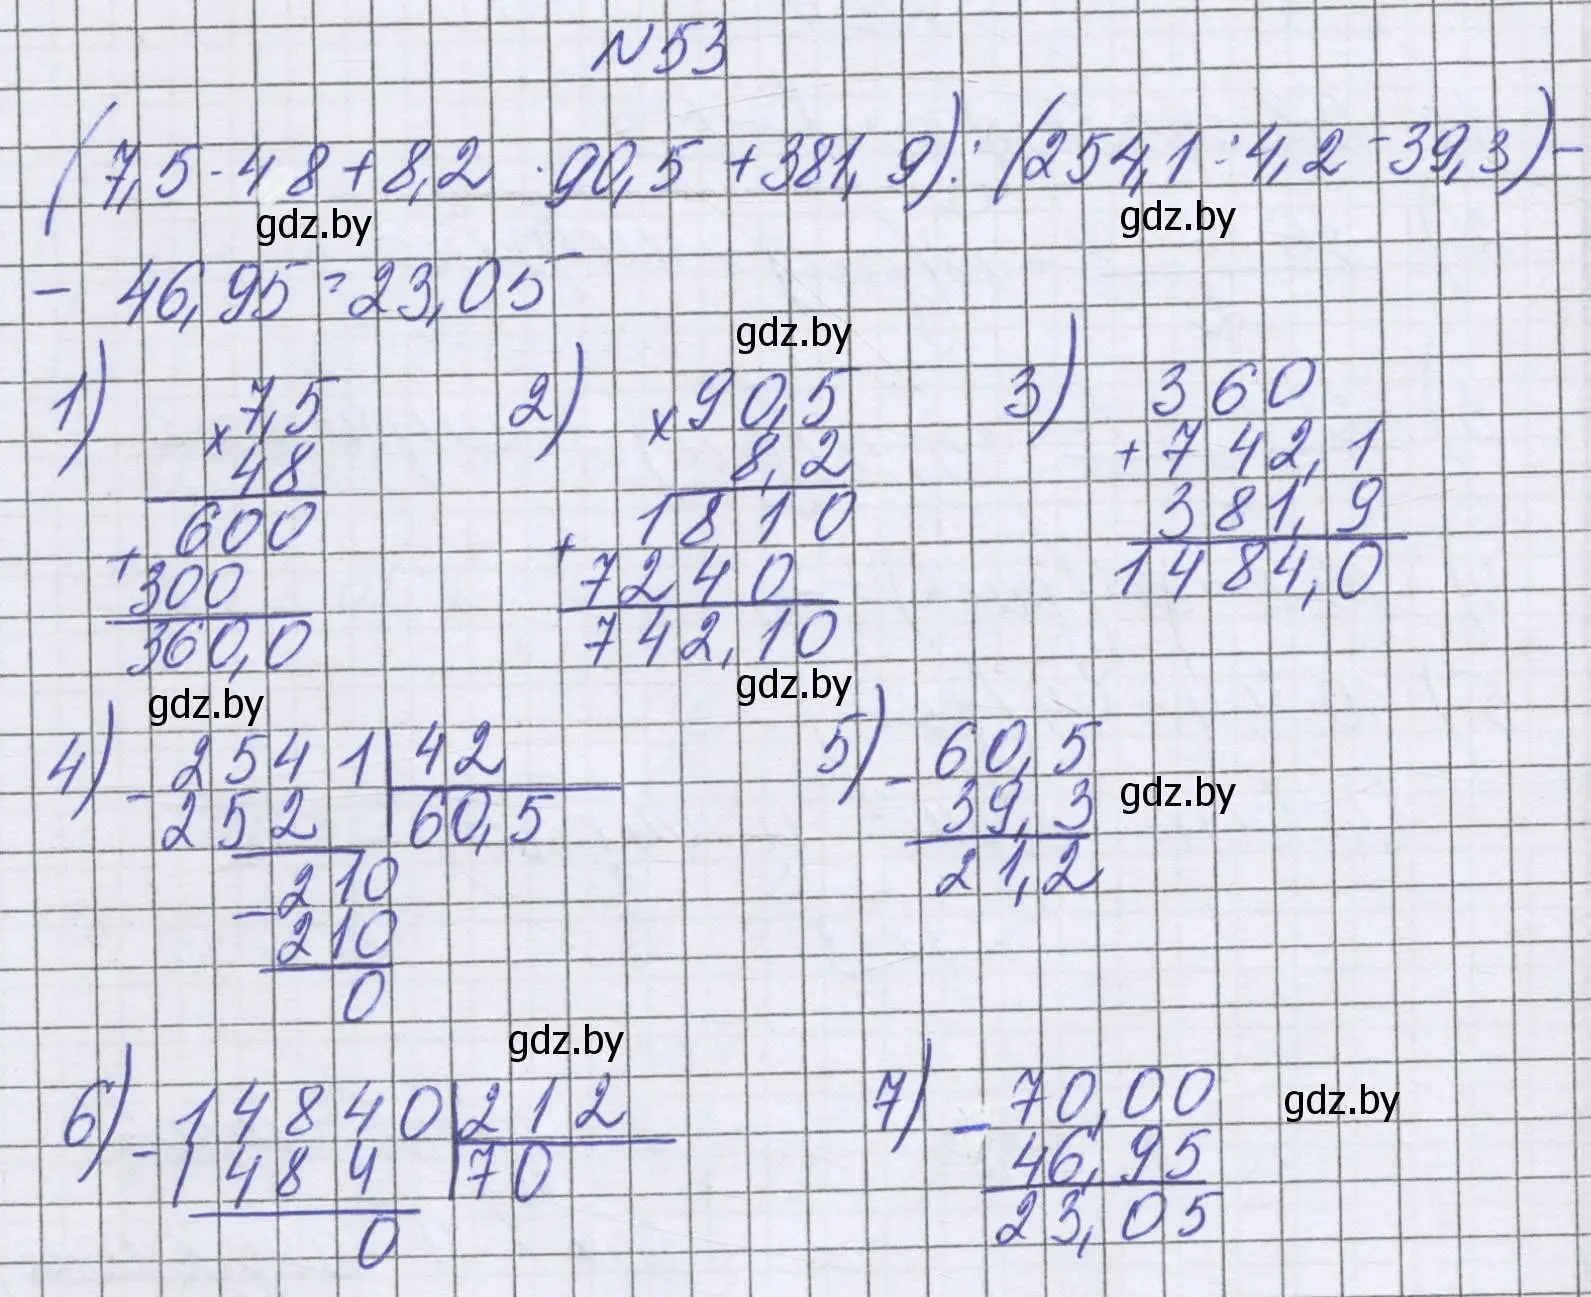 N 53
(7,5 · 48 + 8,2 · 90,5 + 381,9) : (254,1 : 4,2 - 39,3) -
gdz.by gdz.by
- 46,95 = 23,05
gdz.by
1) 2) 3)
7,5 90,5 360
× 48 × 8,2 + 742,1
600 1810 381,9
+ 300 + 7240 1484,0
360,0 742,10
gdz.by gdz.by
4) - 2541 | 42 5) - 60,5
252 60,5 39,3 gdz.by
- 210 21,2
210
0
gdz.by
6) - 14840 | 212 7) - 70,00 gdz.by
1484 70 46,95
0 23,05